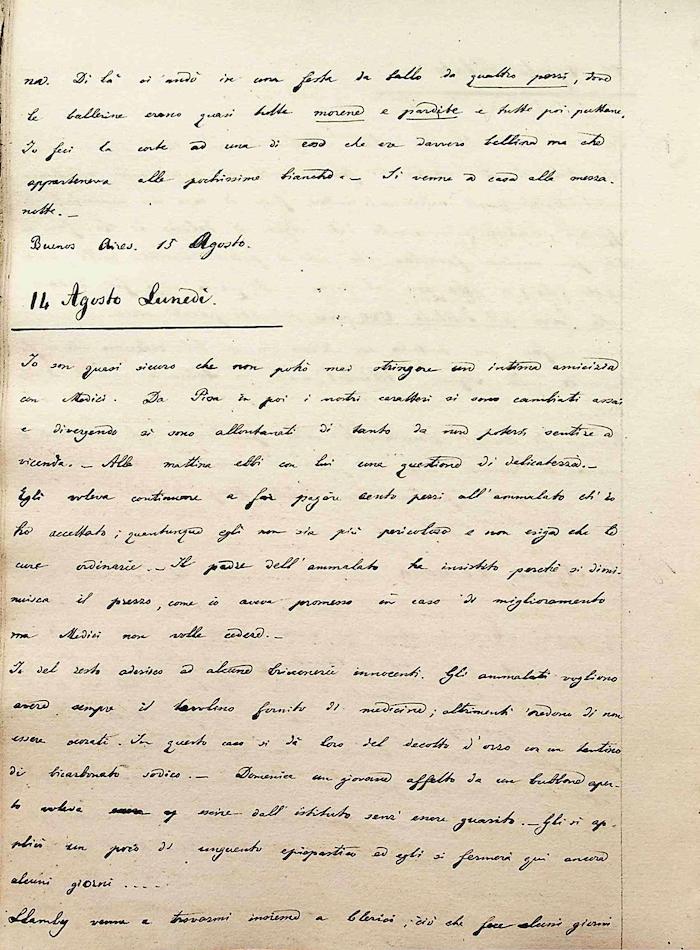 na. Di là si andò in una festa da ballo da quattro pezzi, dove
le ballerine erano quasi tutte morene e pardite e tutte poi puttane.
Io feci la corte ad una di esse che era davvero bellina ma che
apparteneva alle pochissime bianche. — Si venne a casa alla mezza-
notte. —
Buenos Aires. 15 Agosto.
14 Agosto Lunedì.
Io son quasi sicuro che non potrò mai stringere un intima amicizia
con Medici. Da Pisa in poi i nostri caratteri si sono cambiati assai
e divergendo si sono allontanati di tanto da non potersi sentire a
vicenda. — Alla mattina ebbi con lui una questione di delicatezza. —
Egli voleva continuare a far pagare cento pezzi all'ammalato ch'io
ho accettato; quantunque egli non sia più pericoloso e non esiga che le
cure ordinarie. — Il padre dell'ammalato ha insistito perchè si dimi-
nuisca il prezzo, come io aveva promesso in caso di miglioramento
ma Medici non volle cedere. —
Io del resto aderisco ad alcune bricconerie innocenti. Gli ammalati vogliono
avere sempre il tavolino fornito di medicine; altrimenti credono di non
essere curati. In questo caso si dà loro del decotto d'orzo con un tantino
di bicarbonato sodico. — Domenica un giovane affetto da un bubbone aper-
to voleva uscire dall'istituto senz'essere guarito. — Gli si ap-
plicò un poco di unguento epispastico ed egli si fermerà qui ancora
alcuni giorni .....
Llamby venne a trovarmi insieme a Clerici, ciò che fece alcuni giorni